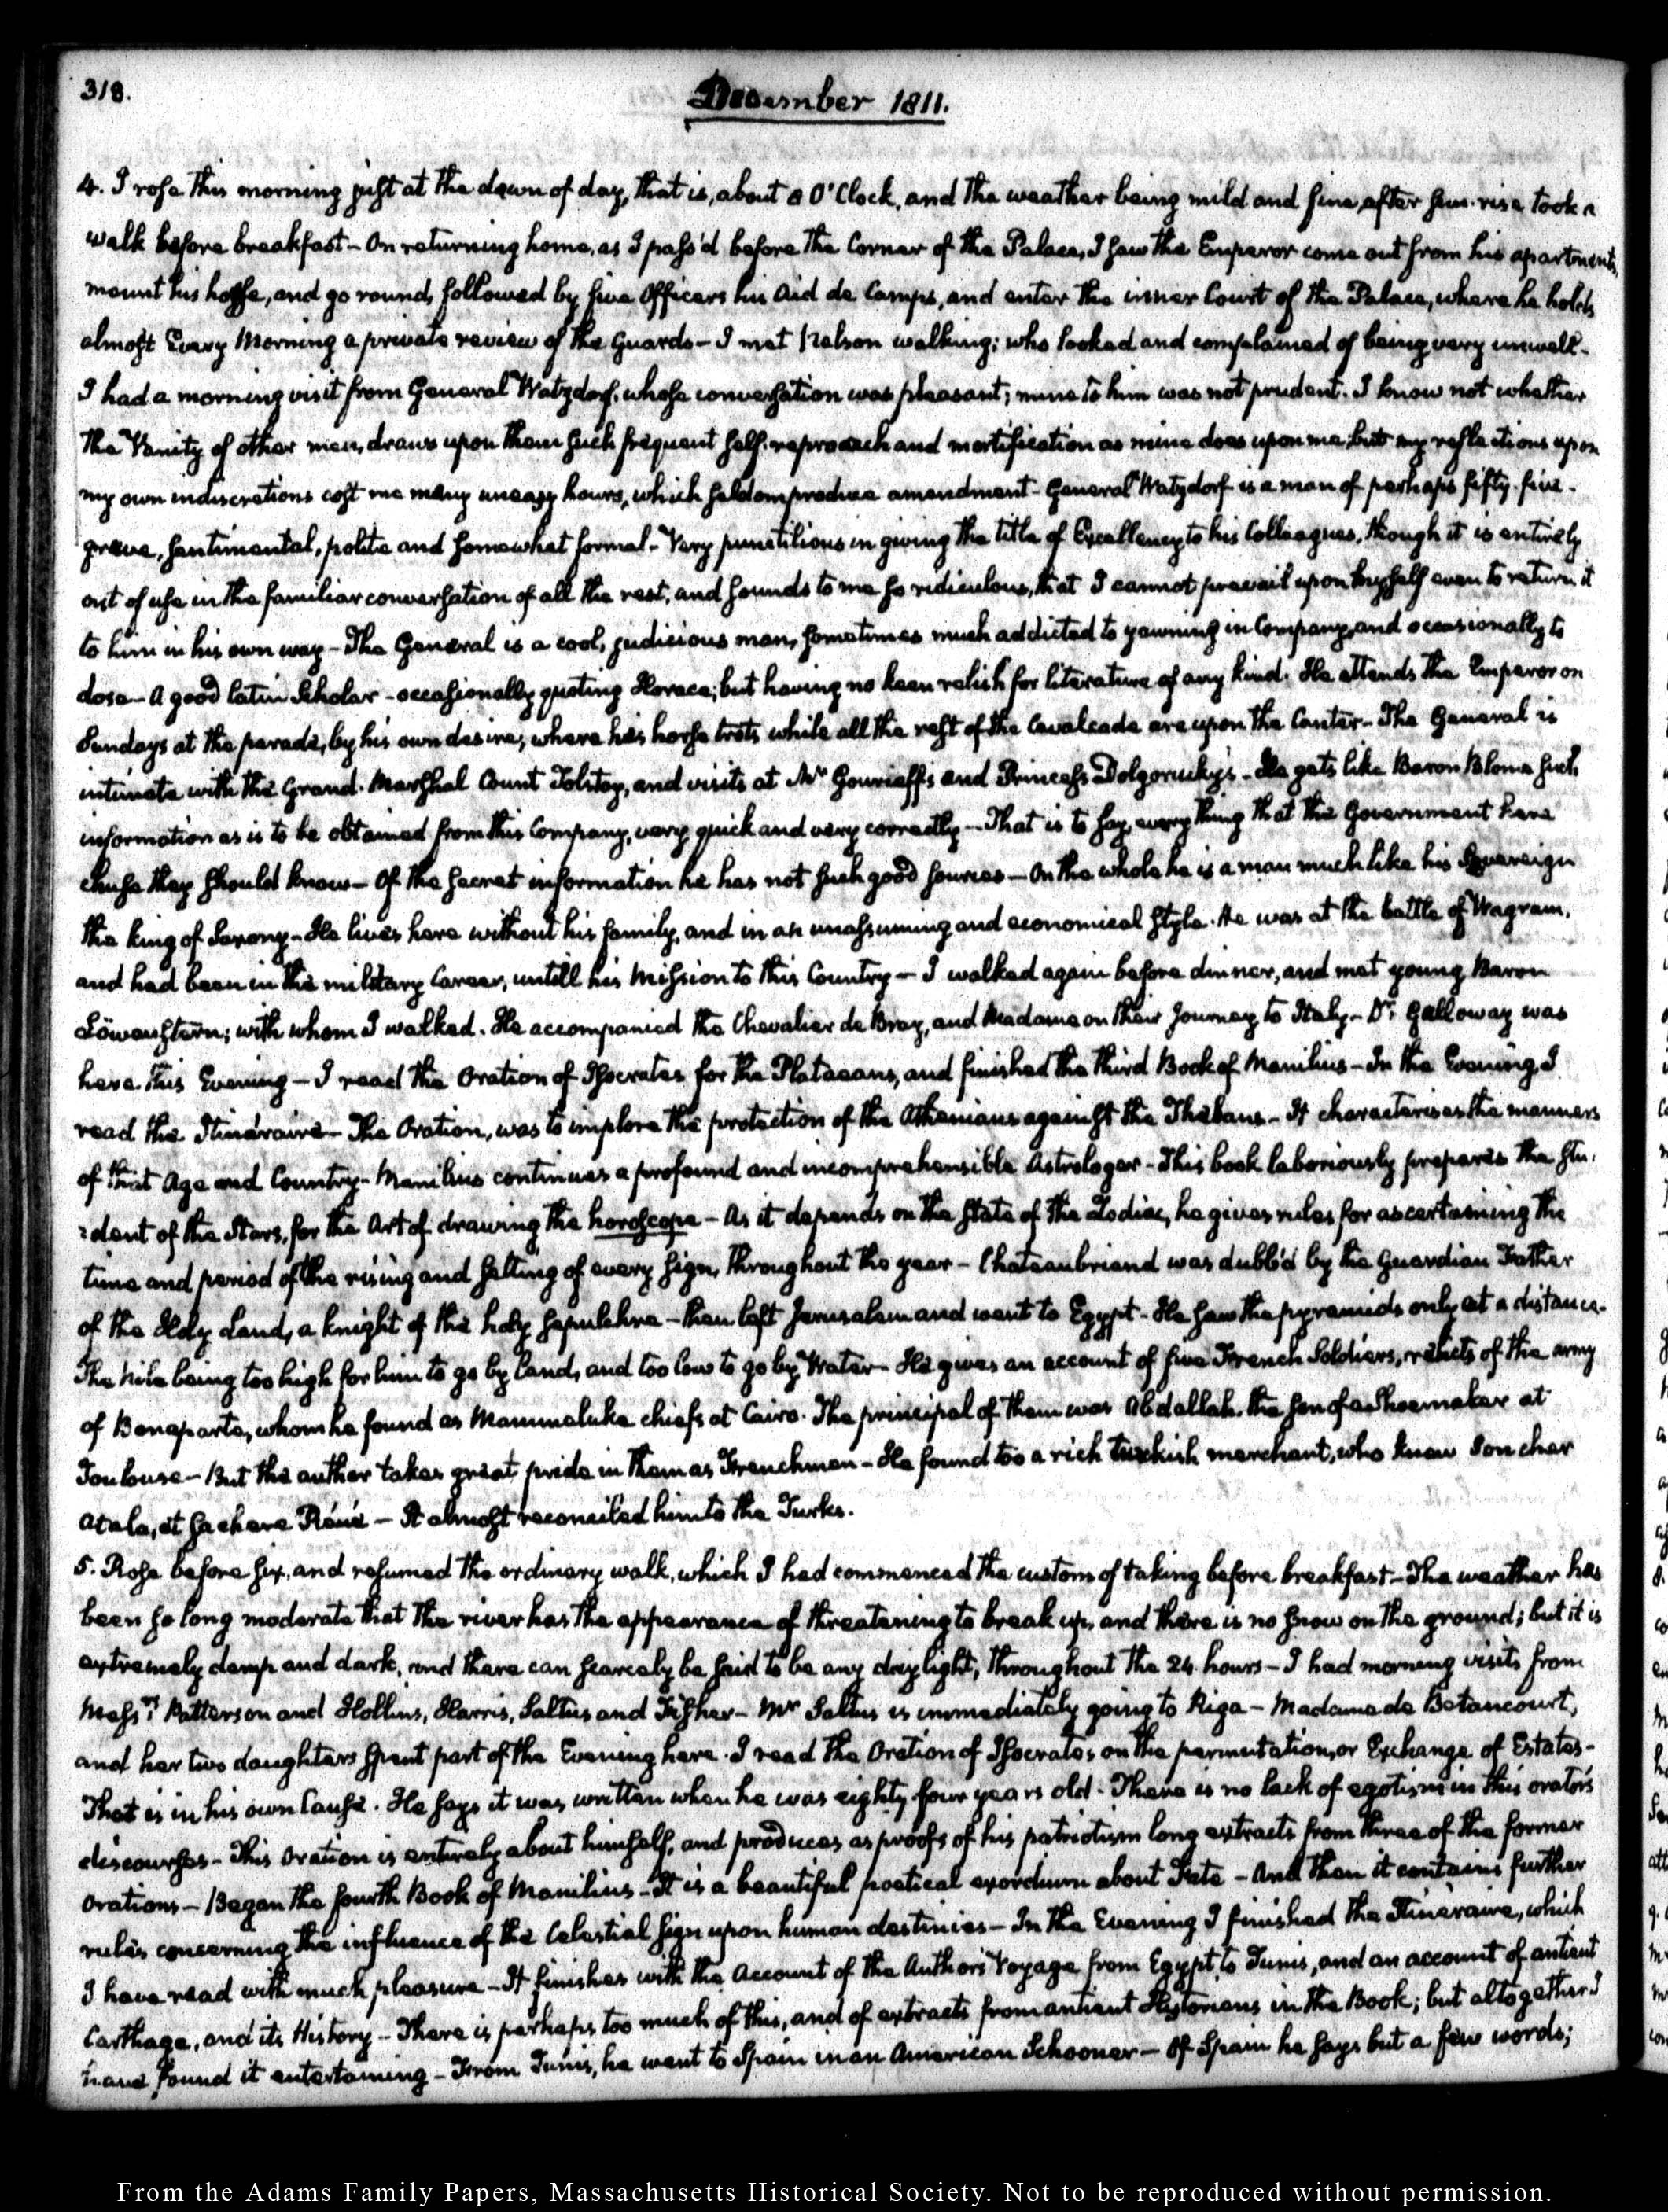 318.
December 1811.
4. I rose this morning just at the dawn of day, that is, about 8 O'Clock, and the weather being mild and fine, after sun-rise took a
walk before breakfast — On returning home, as I pass'd before the Corner of the Palace, I saw the Emperor come out from his apartments,
mount his horse, and go round, followed by five Officers his Aid de Camps, and enter the inner Court of the Palace, where he holds
almost Every Morning a private review of the Guards — I met Nelson walking; who looked and complained of being very unwell.
I had a morning visit from General Watzdorf, whose conversation was pleasant; mine to him was not prudent. I know not whether
the Vanity of other men, draws upon them such frequent self-reproach and mortification as mine does upon me: but my reflections upon
my own indiscretions cost me many uneasy hours, which seldom produce amendment — General Watzdorf is a man of perhaps fifty-five —
grave, sentimental, polite and somewhat formal — Very punctilious in giving the title of Excellency to his Colleagues, though it is entirely
out of use in the familiar conversation of all the rest, and sounds to me so ridiculous, that I cannot prevail upon myself even to return it
to him in his own way — The General is a cool, judicious man, sometimes much addicted to yawning in Company, and occasionally to
dose — A good latin Scholar — occasionally quoting Horace; but having no keen relish for literature of any kind. He attends the Emperor on
Sundays at the parade, by his own desire, where his horse trots while all the rest of the Cavalcade are upon the Canter — The General is
intimate with the Grand-Marshal Count Tolstoy, and visits at Mr Gourieff's and Princess Dolgorucky's — He gets like Baron Blome such
information as is to be obtained from this Company, very quick and very correctly — That is to say, every thing that the Government here
chuse they should know — Of the secret information he has not such good sources — On the whole he is a man much like his Sovereign
the king of Saxony — He lives here without his family, and in an unassuming and economical style. He was at the battle of Wagram,
and had been in the military Career, untill his Mission to this Country — I walked again before dinner, and met young Baron
Löwenstern; with whom I walked. He accompanied the Chevalier de Bray, and Madame on their Journey to Italy — Dr. Galloway was
here this Evening — I read the Oration of Isocrates for the Plataeans, and finished the third Book of Manilius — In the Evening, I
read the Itinéraire — The Oration, was to implore the protection of the Athenians against the Thebans — It characterises the manners
of that Age and Country — Manilius continues a profound and incomprehensible Astrologer — This book laboriously prepares the stu-
-dent of the Stars, for the Art of drawing the horoscope — As it depends on the state of the Zodiac, he gives rules for ascertaining the
time and period of the rising and setting of every sign, throughout the year — Chateaubriand was dubb'd by the Guardian Father
of the Holy Land, a knight of the holy sepulchre — then left Jerusalem and went to Egypt — He saw the pyramids only at a distance.
The Nile being too high for him to go by land, and too low to go by Water — He gives an account of five French Soldiers, relicts of the army
of Bonaparte, whom he found as Mammaluke chiefs at Cairo. The principal of them was Abdallah, the son of a Shoemaker at
Toulouse — But the author takes great pride in them as Frenchmen — He found too a rich turkish merchant, who knew Son cher
Atala, et sa chere Réné — It almost reconciled him to the Turks.
5. Rose before six, and resumed the ordinary walk, which I had commenced the custom of taking before breakfast — The weather has
been so long moderate that the river has the appearance of threatening to break up, and there is no snow on the ground; but it is
extremely damp and dark, and there can scarcely be said to be any daylight, throughout the 24 hours — I had morning visits from
Messrs Patterson and Hollins, Harris, Saltus and Fisher — Mr Saltus is immediately going to Riga — Madame de Betancourt,
and her two daughters spent part of the Evening here. I read the Oration of Isocrates on the permutation, or Exchange of Estates —
That is in his own Cause. He says it was written when he was eighty four years old. There is no lack of egotism in this orator's
discourses — This Oration is entirely about himself, and produces as proofs of his patriotism long extracts from three of the former
Orations — Began the fourth Book of Manilius — It is a beautiful poetical exordium about Fate — And then it contains further
rules concerning the influence of the Celestial sign upon human destinies — In the Evening I finished the Itinéraire, which
I have read with much pleasure — It finishes with the Account of the Author's Voyage from Egypt to Tunis, and an account of antient
Carthage, and its History — There is perhaps too much of this, and of extracts from antient Historians in the Book; but altogether I
have found it entertaining — From Tunis, he went to Spain in an American Schooner — Of Spain he says but a few words;
From the Adams Family Papers, Massachusetts Historical Society. Not to be reproduced without permission.